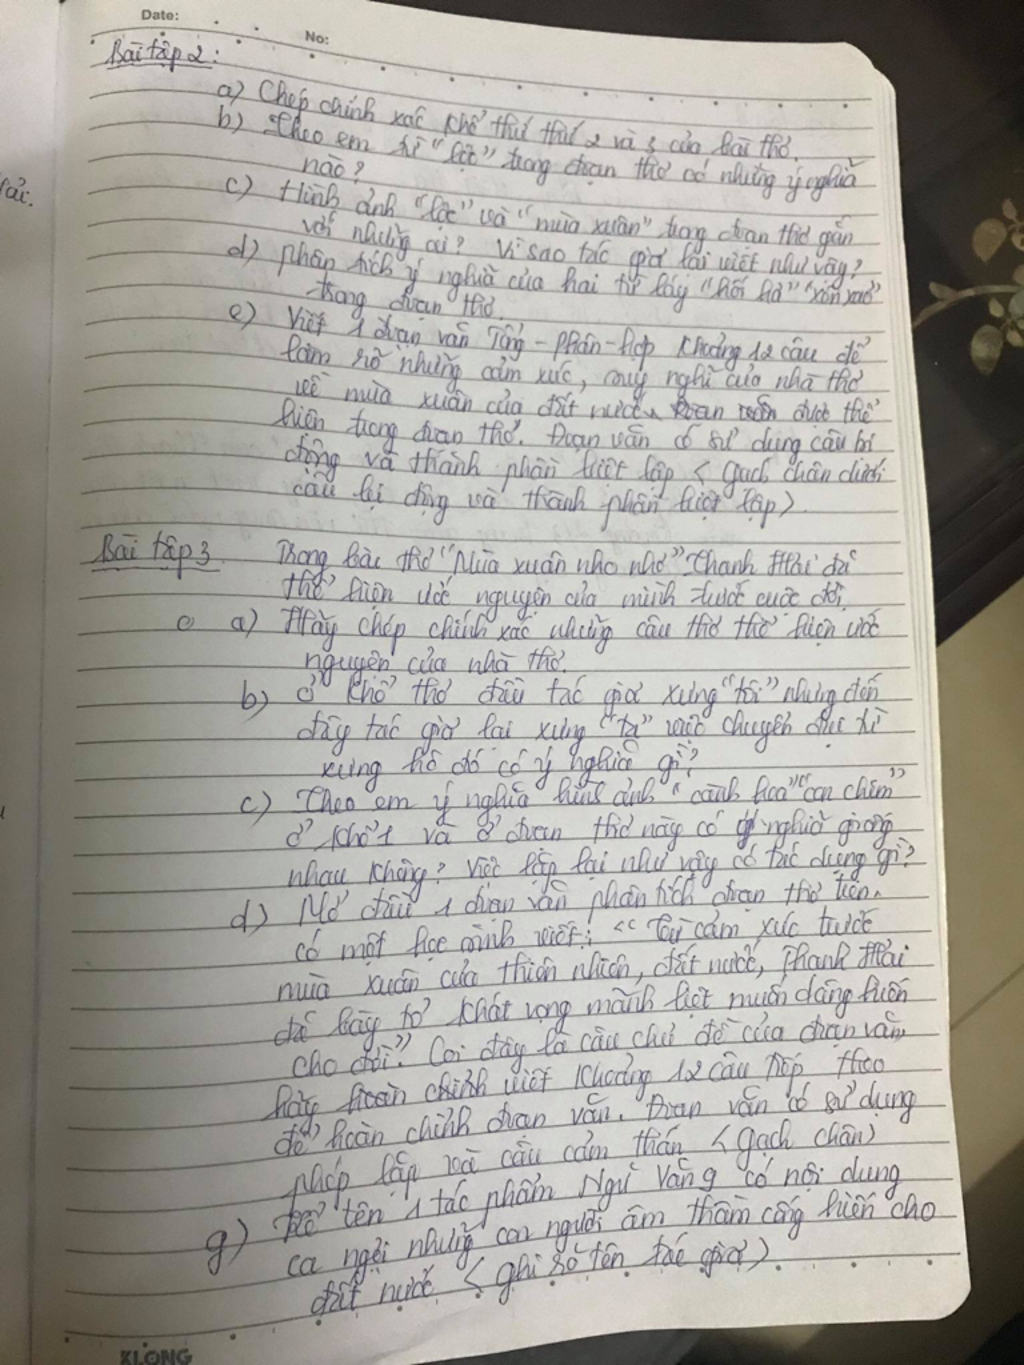 Date:
No:
Bài tập 2:
a) Chép chính xác khổ thứ thứ 2 và 3 của bài thơ.
b) Theo em từ "lộc" trong đoạn thơ có những ý nghĩa
nào?
c) Hình ảnh "lộc" và "mùa xuân" trong đoạn thơ gắn
với những ai? Vì sao tác giả lại viết như vậy?
d) phân tích ý nghĩa của hai từ láy "hối hả" "xôn xao"
trong đoạn thơ.
e) Viết 1 đoạn văn Tổng - phân - hợp khoảng 12 câu để
làm rõ những cảm xúc, suy nghĩ của nhà thơ
về mùa xuân của đất nước được thể
hiện trong đoạn thơ. Đoạn văn có sử dụng câu bị
động và thành phần biệt lập < gạch chân dưới
câu bị động và thành phần biệt lập >
Bài tập 3 Trong bài thơ "Mùa xuân nho nhỏ" Thanh Hải đã
thể hiện ước nguyện của mình trước cuộc đời
a) Hãy chép chính xác những câu thơ thể hiện ước
nguyện của nhà thơ.
b) ở khổ thơ đầu tác giả xưng "tôi" nhưng đến
đây tác giả lại xưng "ta" việc chuyển đại từ
xưng hô đó có ý nghĩa gì?
c) Theo em ý nghĩa hình ảnh "cành hoa" "con chim"
ở khổ 1 và ở đoạn thơ này có nghĩa giống
nhau không? Việc lặp lại như vậy có tác dụng gì?
d) Mở đầu 1 đoạn văn phân tích đoạn thơ trên.
có một học sinh viết: "Từ cảm xúc trước
mùa xuân của thiên nhiên, đất nước, Thanh Hải
đã bày tỏ khát vọng mãnh liệt muốn dâng hiến
cho đời". Coi đây là câu chủ đề của đoạn văn,
hãy viết khoảng 12 câu tiếp theo
để hoàn chỉnh đoạn văn. Đoạn văn có sử dụng
phép lặp và câu cảm thán < gạch chân >
g) Kể tên 1 tác phẩm Ngữ Văn 9 có nội dung
ca ngợi những con người âm thầm cống hiến cho
đất nước < ghi rõ tên tác giả >
KLONG